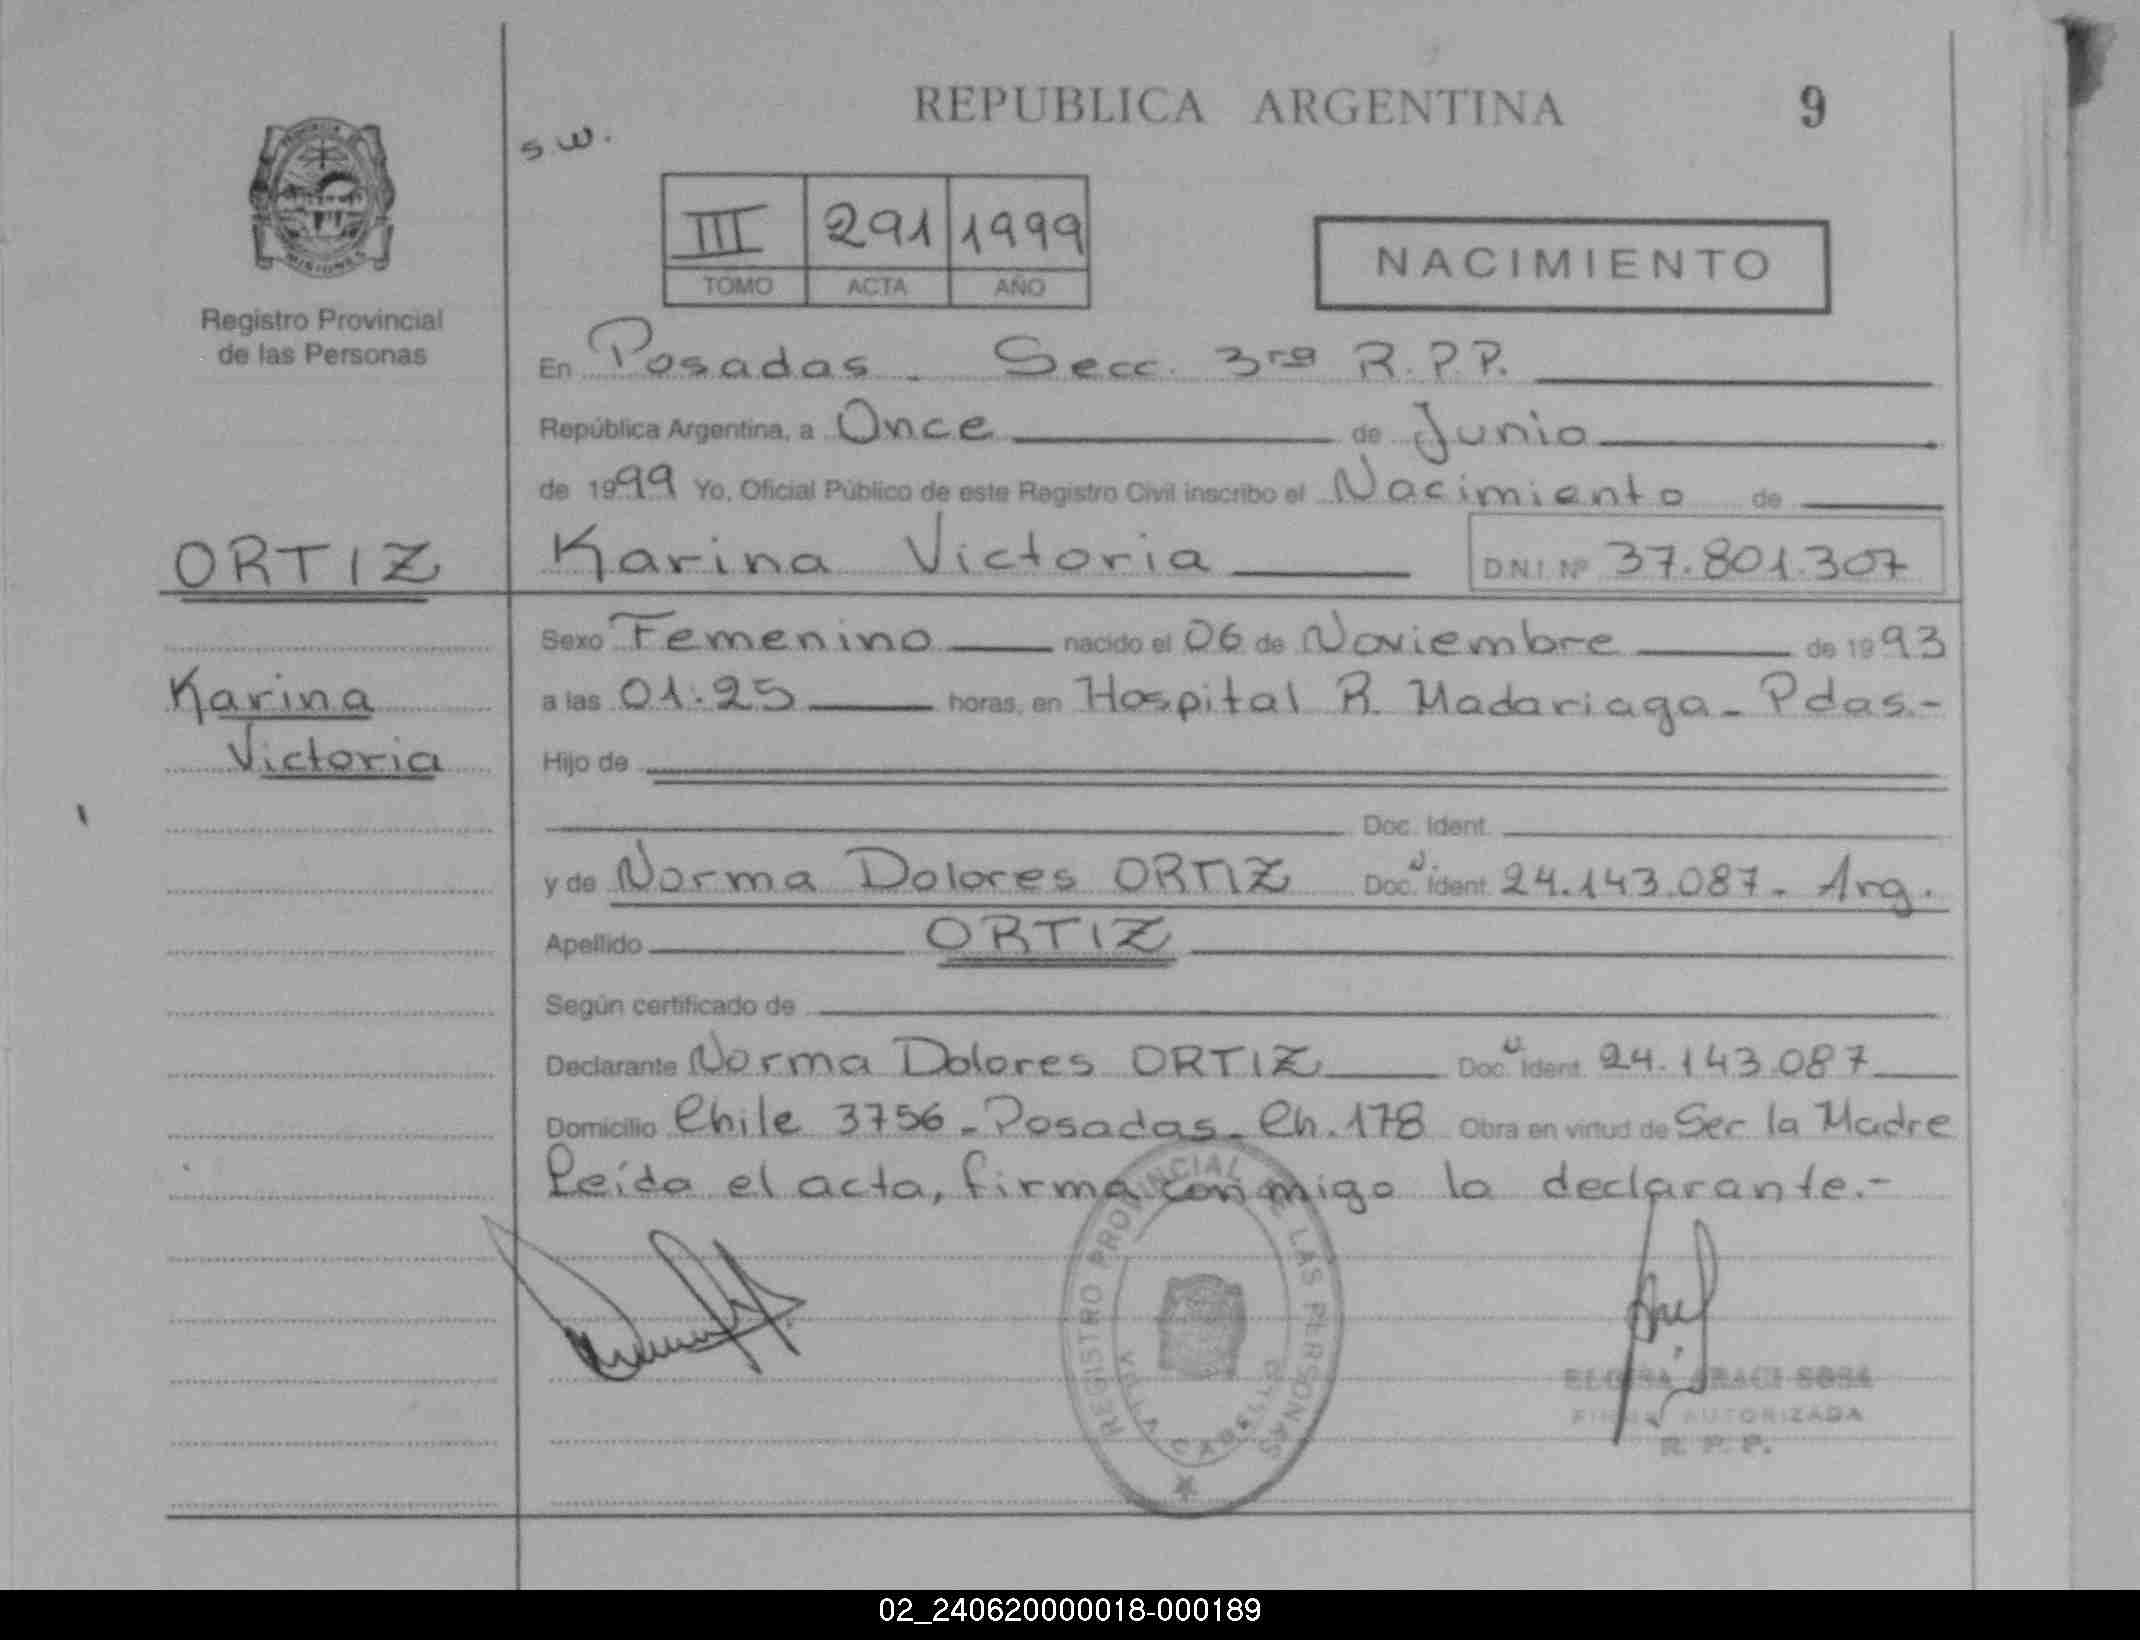 REPUBLICA ARGENTINA 9
S.W.
MISIONES
III 291 1999
TOMO ACTA AÑO
NACIMIENTO
Registro Provincial
de las Personas
En Posadas. Secc. 3ra R.P.P.
República Argentina, a Once de Junio
de 1999 Yo, Oficial Público de este Registro Civil inscribo el Nacimiento de
ORTIZ
Karina Victoria D.N.I. Nº 37.801.307
Sexo Femenino nacido el 06 de Noviembre de 1993
Karina
Victoria
a las 01:25 horas, en Hospital R. Madariaga - Pdas.-
Hijo de
Doc. Ident.
y de Norma Dolores ORTIZ Doc. Ident. 24.143.087. Arg.
Apellido ORTIZ
Según certificado de
Declarante Norma Dolores ORTIZ Doc. Ident. 24.143.087
Domicilio Chile 3756 - Posadas - Ch. 178 Obra en virtud de Ser la Madre
Leída el acta, firma conmigo la declarante.-
REGISTRO PROVINCIAL DE LAS PERSONAS
VILLA CABELLO
ELOISA ARACI SOSA
FIRMA AUTORIZADA
R. P. P.
02_240620000018-000189